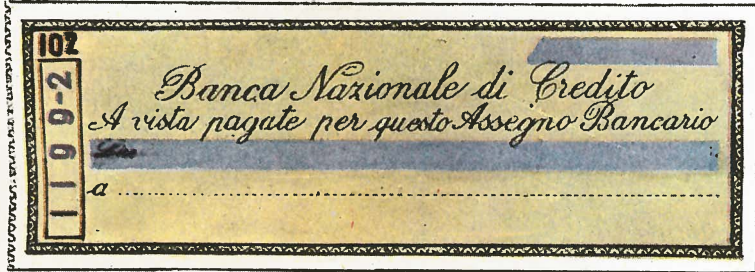 102
1199-2
Banca Nazionale di Credito
A vista pagate per questo Assegno Bancario
a